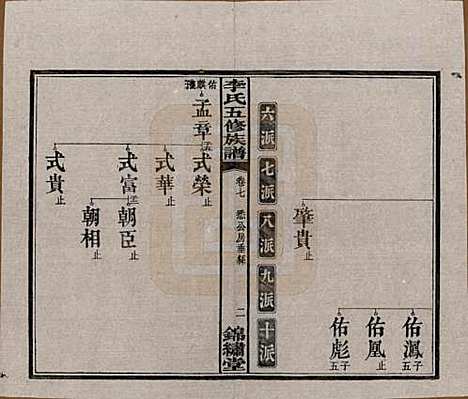 肇貴止
佑鳳子五
佑凰止
佑彪子五
六派
七派
八派
九派
十派
李氏五修族譜
卷七
二
錦繡堂
孟章
式榮止
式華止
式富
式貴止
朝臣止
朝相止